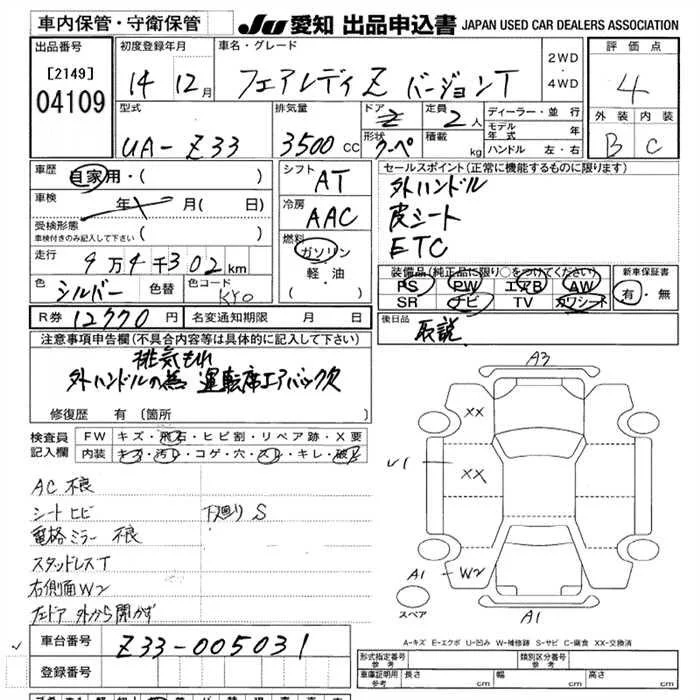 車内保管・守衛保管
JU 愛知 出品申込書 JAPAN USED CAR DEALERS ASSOCIATION
出品番号 [2149] 04109
初度登録年月 14年12月
車名・グレード フェアレディZ バージョンT
2WD・4WD
評価点 4
外装 B 内装 C
型式 UA-Z33
排気量 3500cc
ドア 2
形状 クーペ
定員 2人
積載 kg
ディーラー・並行
モデル年式 年
ハンドル 左・右
車歴 自家用・( )
車検 年 月( 日)
受検形態
車検付きのみ記入して下さい ( )
走行 9万4千302km
色 シルバー 色替 色コード KY0
シフト AT
冷房 AAC
燃料 ガソリン 軽油 ( )
セールスポイント(正常に機能するものに限ります)
外ハンドル
皮シート
ETC
装備品(純正品に限り○をつけてください)
PS PW エアB AW
SR ナビ TV カワシート
新車保証書 有・無
R券 12770円 名変通知期限 月 日
後日品 取説
注意事項申告欄(不具合内容等は具体的に記入して下さい)
排気もれ
外ハンドルの為 運転席エアバック欠
修復歴 有 〔箇所
検査員記入欄
FW キズ・飛石・ヒビ割・リペア跡・X要
内装 キズ・汚れ・コゲ・穴・スレ・キレ・破れ
AC 不良
シートヒビ 下廻りS
電格ミラー 不良
スタッドレスT
右側面W2
左ドア 外から開かず
A3
XX
U1
XX
A1 W2
スペア
A1
A-キズ E-エクボ U-凹み W-補修跡 S-サビ C-腐食 XX-交換済
車台番号 Z33-005031
登録番号
形式指定番号 参考 類別区分番号 参考
車庫証明用 参考 長さ cm 幅 cm 高さ cm